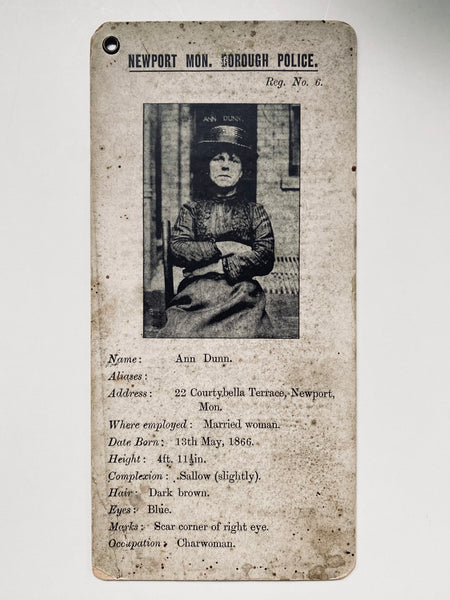 NEWPORT MON. BOROUGH POLICE.
Reg. No. 6.
ANN DUNN.
Name: Ann Dunn.
Aliases:
Address: 22 Courtybella Terrace, Newport,
Mon.
Where employed: Married woman.
Date Born: 13th May, 1866.
Height: 4ft. 11½in.
Complexion: Sallow (slightly).
Hair: Dark brown.
Eyes: Blue.
Marks: Scar corner of right eye.
Occupation: Charwoman.